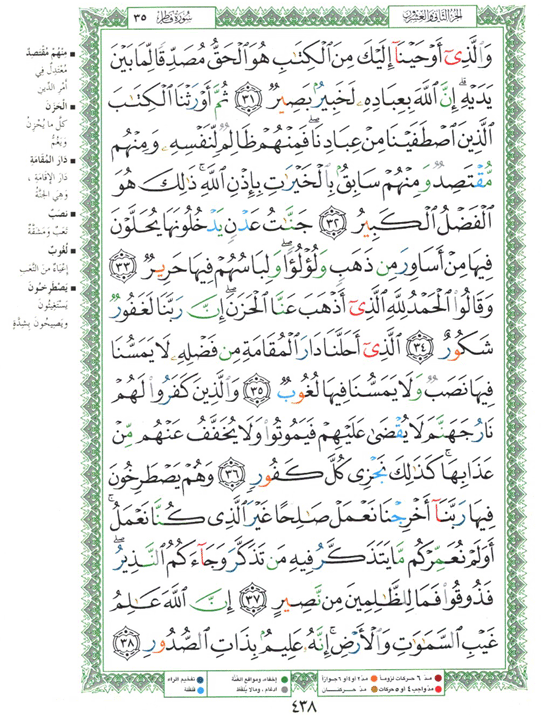 الجزء الثاني والعشرون
سورة فاطر ٣٥
وَالَّذِىٓ أَوْحَيْنَآ إِلَيْكَ مِنَ الْكِتَٰبِ هُوَ الْحَقُّ مُصَدِّقًا لِّمَا بَيْنَ
يَدَيْهِ ۗ إِنَّ اللَّهَ بِعِبَادِهِۦ لَخَبِيرٌۢ بَصِيرٌ ٣١ ثُمَّ أَوْرَثْنَا الْكِتَٰبَ
الَّذِينَ اصْطَفَيْنَا مِنْ عِبَادِنَا ۖ فَمِنْهُمْ ظَالِمٌ لِّنَفْسِهِۦ وَمِنْهُم
مُّقْتَصِدٌ وَمِنْهُمْ سَابِقٌۢ بِالْخَيْرَٰتِ بِإِذْنِ اللَّهِ ۚ ذَٰلِكَ هُوَ
الْفَضْلُ الْكَبِيرُ ٣٢ جَنَّٰتُ عَدْنٍ يَدْخُلُونَهَا يُحَلَّوْنَ
فِيهَا مِنْ أَسَاوِرَ مِن ذَهَبٍ وَلُؤْلُؤًا ۖ وَلِبَاسُهُمْ فِيهَا حَرِيرٌ ٣٣
وَقَالُوا۟ الْحَمْدُ لِلَّهِ الَّذِىٓ أَذْهَبَ عَنَّا الْحَزَنَ ۖ إِنَّ رَبَّنَا لَغَفُورٌ
شَكُورٌ ٣٤ الَّذِىٓ أَحَلَّنَا دَارَ الْمُقَامَةِ مِن فَضْلِهِۦ لَا يَمَسُّنَا
فِيهَا نَصَبٌ وَلَا يَمَسُّنَا فِيهَا لُغُوبٌ ٣٥ وَالَّذِينَ كَفَرُوا۟ لَهُمْ
نَارُ جَهَنَّمَ لَا يُقْضَىٰ عَلَيْهِمْ فَيَمُوتُوا۟ وَلَا يُخَفَّفُ عَنْهُم مِّنْ
عَذَابِهَا ۚ كَذَٰلِكَ نَجْزِى كُلَّ كَفُورٍ ٣٦ وَهُمْ يَصْطَرِخُونَ
فِيهَا رَبَّنَآ أَخْرِجْنَا نَعْمَلْ صَٰلِحًا غَيْرَ الَّذِى كُنَّا نَعْمَلُ ۚ
أَوَلَمْ نُعَمِّرْكُم مَّا يَتَذَكَّرُ فِيهِ مَن تَذَكَّرَ وَجَآءَكُمُ النَّذِيرُ ۖ
فَذُوقُوا۟ فَمَا لِلظَّٰلِمِينَ مِن نَّصِيرٍ ٣٧ إِنَّ اللَّهَ عَٰلِمُ
غَيْبِ السَّمَٰوَٰتِ وَالْأَرْضِ ۚ إِنَّهُۥ عَلِيمٌۢ بِذَاتِ الصُّدُورِ ٣٨
■ مِنْهُمْ مُقْتَصِدٌ
مُعْتَدِلٌ فِي
أمْرِ الدِّين
■ الْحَزَنَ
كلَّ ما يُحْزِنُ
وَيَغُمُّ
■ دَارَ الْمُقَامَةِ
دَارَ الإقَامَةِ ،
وَهِيَ الجنَّةُ
■ نَصَبٌ
تَعَبٌ وَمَشَقَّةٌ
■ لُغُوبٌ
إعْيَاءٌ مِنَ التَّعَبِ
■ يَصْطَرِخُونَ
يَسْتَغِيثُونَ
وَيَصِيحُونَ بِشِدَّةٍ
مدّ ٦ حركات لزوماً مدّ ٢ أو ٤ أو ٦ جوازاً
مدّ واجب ٤ أو ٥ حركات مدّ حركتان
إخفاء، ومواقع الغنّة تفخيم الراء
ادغام، ومالا يلفظ قلقلة
٤٣٨